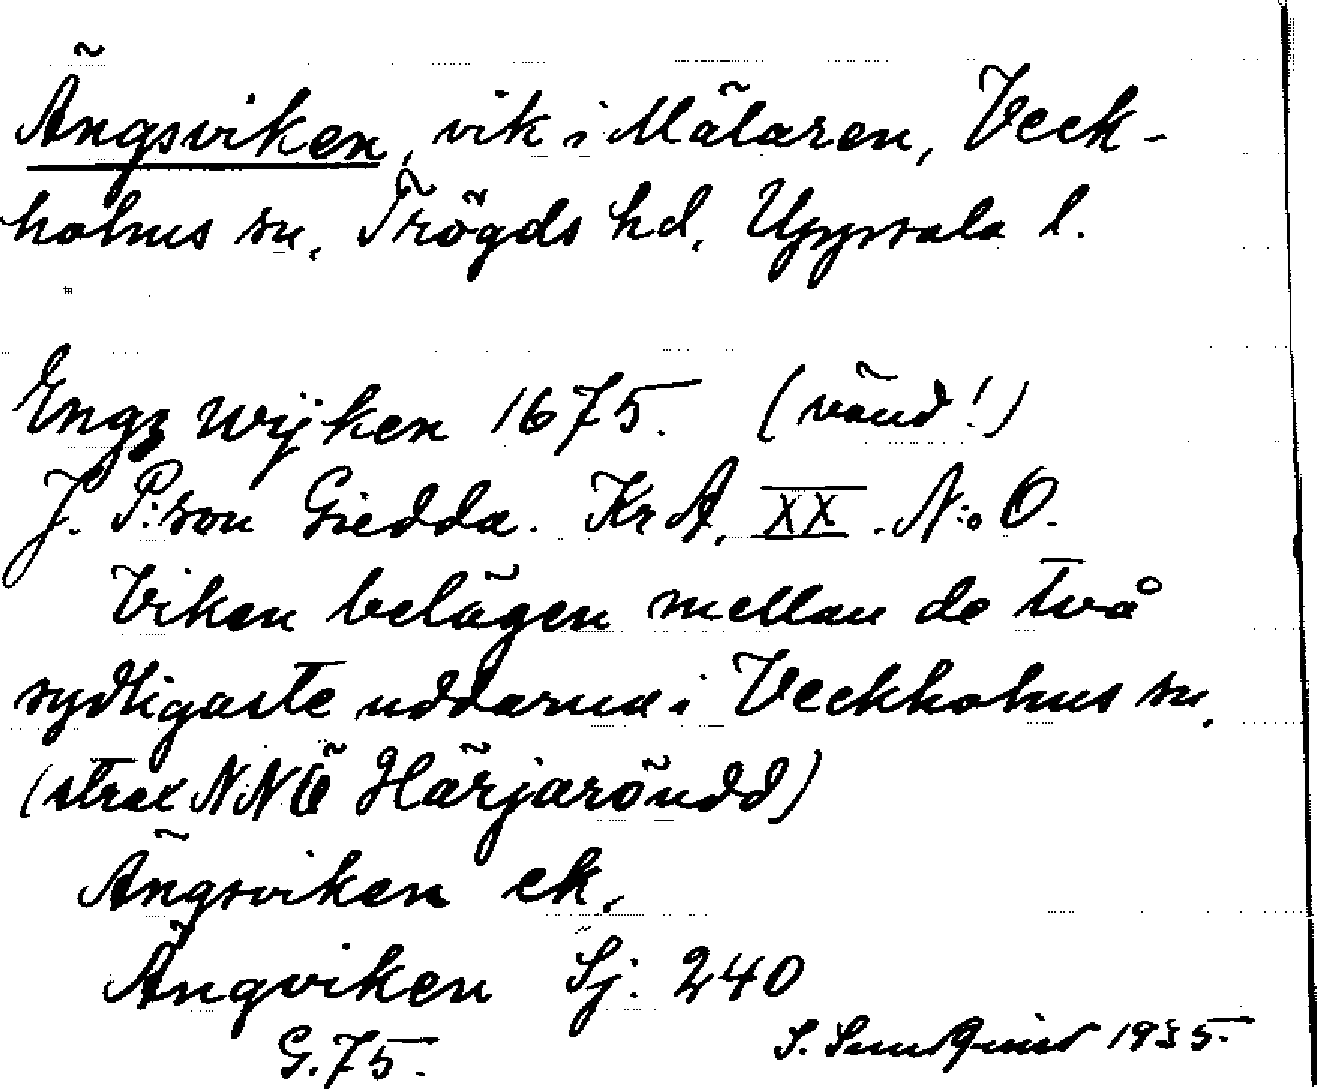 Ängsviken, vik i Mälaren, Veck-
holms sn, Trögds hd, Uppsala l.
Engz wijken 1675. (vänd!)
J. P:son Giedda. KrA, XX. N:o O.
Viken belägen mellan de två
sydligaste uddarna i Veckholms sn,
(strax NNÖ Härjaröudd)
Ängsviken ek.
Ängviken Sj. 240
G.75.
S. Sundqvist 1935.